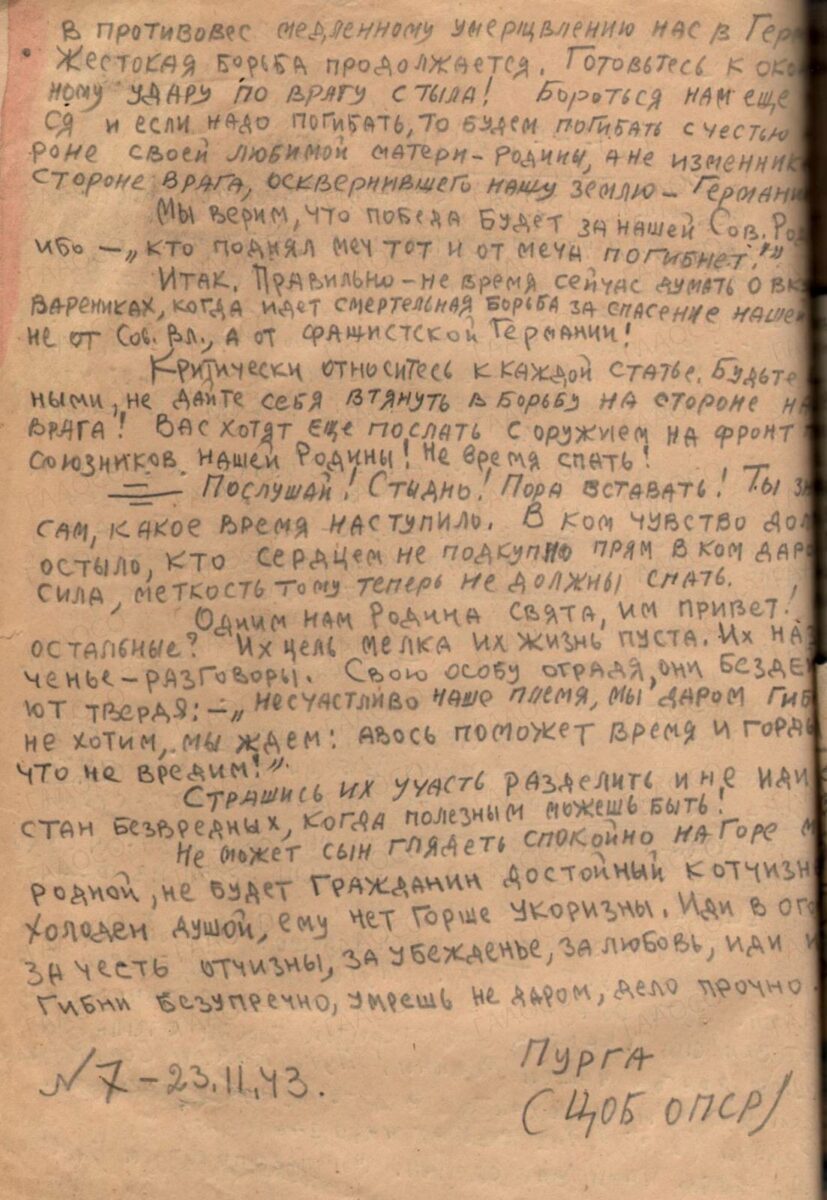 в противовес медленному умерщвлению нас в Гер
Жестокая борьба продолжается. Готовьтесь к око
ному удару по врагу с тыла! Бороться нам еще
ся и если надо погибать, то будем погибать с честью
роне своей любимой матери-Родины, а не изменник
стороне врага, осквернившего нашу землю – Германи
Мы верим, что победа будет за нашей Сов. Род
ибо – „кто поднял меч тот и от меча погибнет!"
Итак. Правильно – не время сейчас думать о вку
варениках, когда идет смертельная борьба за спасение нашей
не от Сов. Вл., а от фашистской Германии!
Критически относитесь к каждой статье. Будьте
ными, не дайте себя втянуть в борьбу на стороне на
врага! Вас хотят еще послать с оружием на фронт
союзников нашей Родины! Не время спать!
Послушай! Стыдно! Пора вставать! Ты зн
сам, какое время наступило. В ком чувство дол
остыло, кто сердцем не подкупно прям в ком даро
сила, меткость тому теперь не должны спать.
Одним нам Родина свята, им привет!
остальные? Их цель мелка их жизнь пуста. Их наз
ченье – разговоры. Свою особу отрадя, они бездей
ют твердя: – „несчастливо наше племя, мы даром гиб
не хотим, мы ждем: авось поможет время и горды
что не вредим!".
Страшись их участь разделить и не иди
стан безвредных, когда полезным можешь быть!
Не может сын глядеть спокойно на горе м
родной, не будет гражданин достойный к отчизн
холоден душой, ему нет горше укоризны. Иди в ого
за честь отчизны, за убежденье, за любовь, иди и
гибни безупречно, умрешь не даром, дело прочно.
N 7 – 23.11.43.
Пурга
(ЦОБ ОПСР)